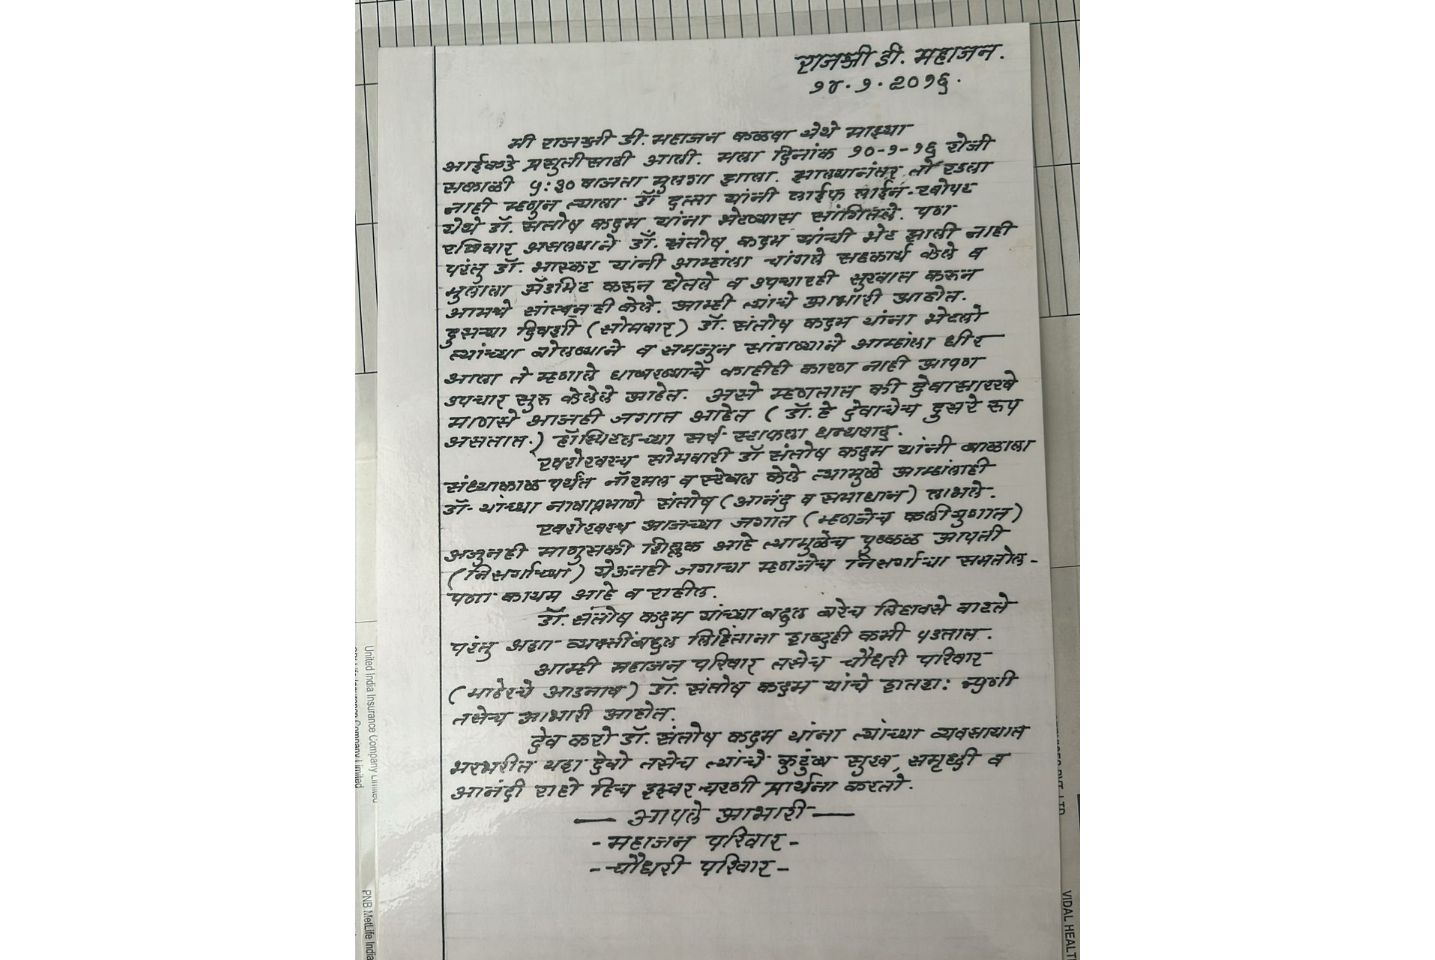 राजश्री डी. महाजन.
१४.१.२०१६.
मी राजश्री डी. महाजन कळवा येथे माझ्या
आईकडे प्रसुतीसाठी आली. मला दिनांक १०-१-१६ रोजी
सकाळी ५:३० वाजता मुलगा झाला. झाल्यानंतर तो रडला
नाही म्हणुन त्याला डॉ दत्ता यांनी लाईफ लाईन-खोपट
येथे डॉ. संतोष कदम यांना भेटण्यास सांगितले. पण
रविवार असल्याने डॉ. संतोष कदम यांची भेट झाली नाही
परंतु डॉ. भास्कर यांनी आम्हांला चांगले सहकार्य केले व
मुलाला अॅडमिट करून घेतले व उपचारही सुरवात करून
आमचे सांत्वन ही केले. आम्ही त्यांचे आभारी आहोत.
दुसऱ्या दिवशी (सोमवार) डॉ. संतोष कदम यांना भेटलो
त्यांच्या बोलण्याने व समजुन सांगण्याने आम्हांला धीर
आला ते म्हणाले घाबरण्याचे काहीही कारण नाही आपण
उपचार सुरु केलेले आहेत. असे म्हणतात की देवासारखे
माणसे आजही जगात आहेत (डॉ. हे देवाचेच दुसरे रूप
असतात.) हॉस्पिटलच्या सर्व स्टाफला धन्यवाद.
खरोखरच सोमवारी डॉ संतोष कदम यांनी बाळाला
संध्याकाळ पर्यंत नॉरमल व स्टेबल केले त्यामुळे आम्हांलाही
डॉ. यांच्या नावाप्रमाणे संतोष (आनंद व समाधान) लाभले.
खरोखरच आजच्या जगात (म्हणजेच कलीयुगात)
अजुनही माणुसकी शिल्लक आहे त्यामुळेच पुष्कळ आपत्ती
(निसर्गाच्या) येऊनही जगाचा म्हणजेच निसर्गाचा समतोल-
पणा कायम आहे व राहील.
डॉ. संतोष कदम यांच्या बद्दल बरेच लिहावसे वाटते
परंतु अशा व्यक्तींबद्दल लिहितांना शब्दही कमी पडतात.
आम्ही महाजन परिवार तसेच चौधरी परिवार
(माहेरचे आडनाव) डॉ. संतोष कदम यांचे शतशः ऋणी
तसेच आभारी आहोत.
देव करो डॉ. संतोष कदम यांना त्यांच्या व्यवसायात
भरभरीत यश देवो तसेच त्यांचे कुटुंब सुख, समृध्दी व
आनंदी राहो हिच ईश्वर चरणी प्रार्थना करतो.
— आपले आभारी —
- महाजन परिवार -
- चौधरी परिवार -
United India Insurance Company Limited
PNB MetLife India
VIDAL HEALT